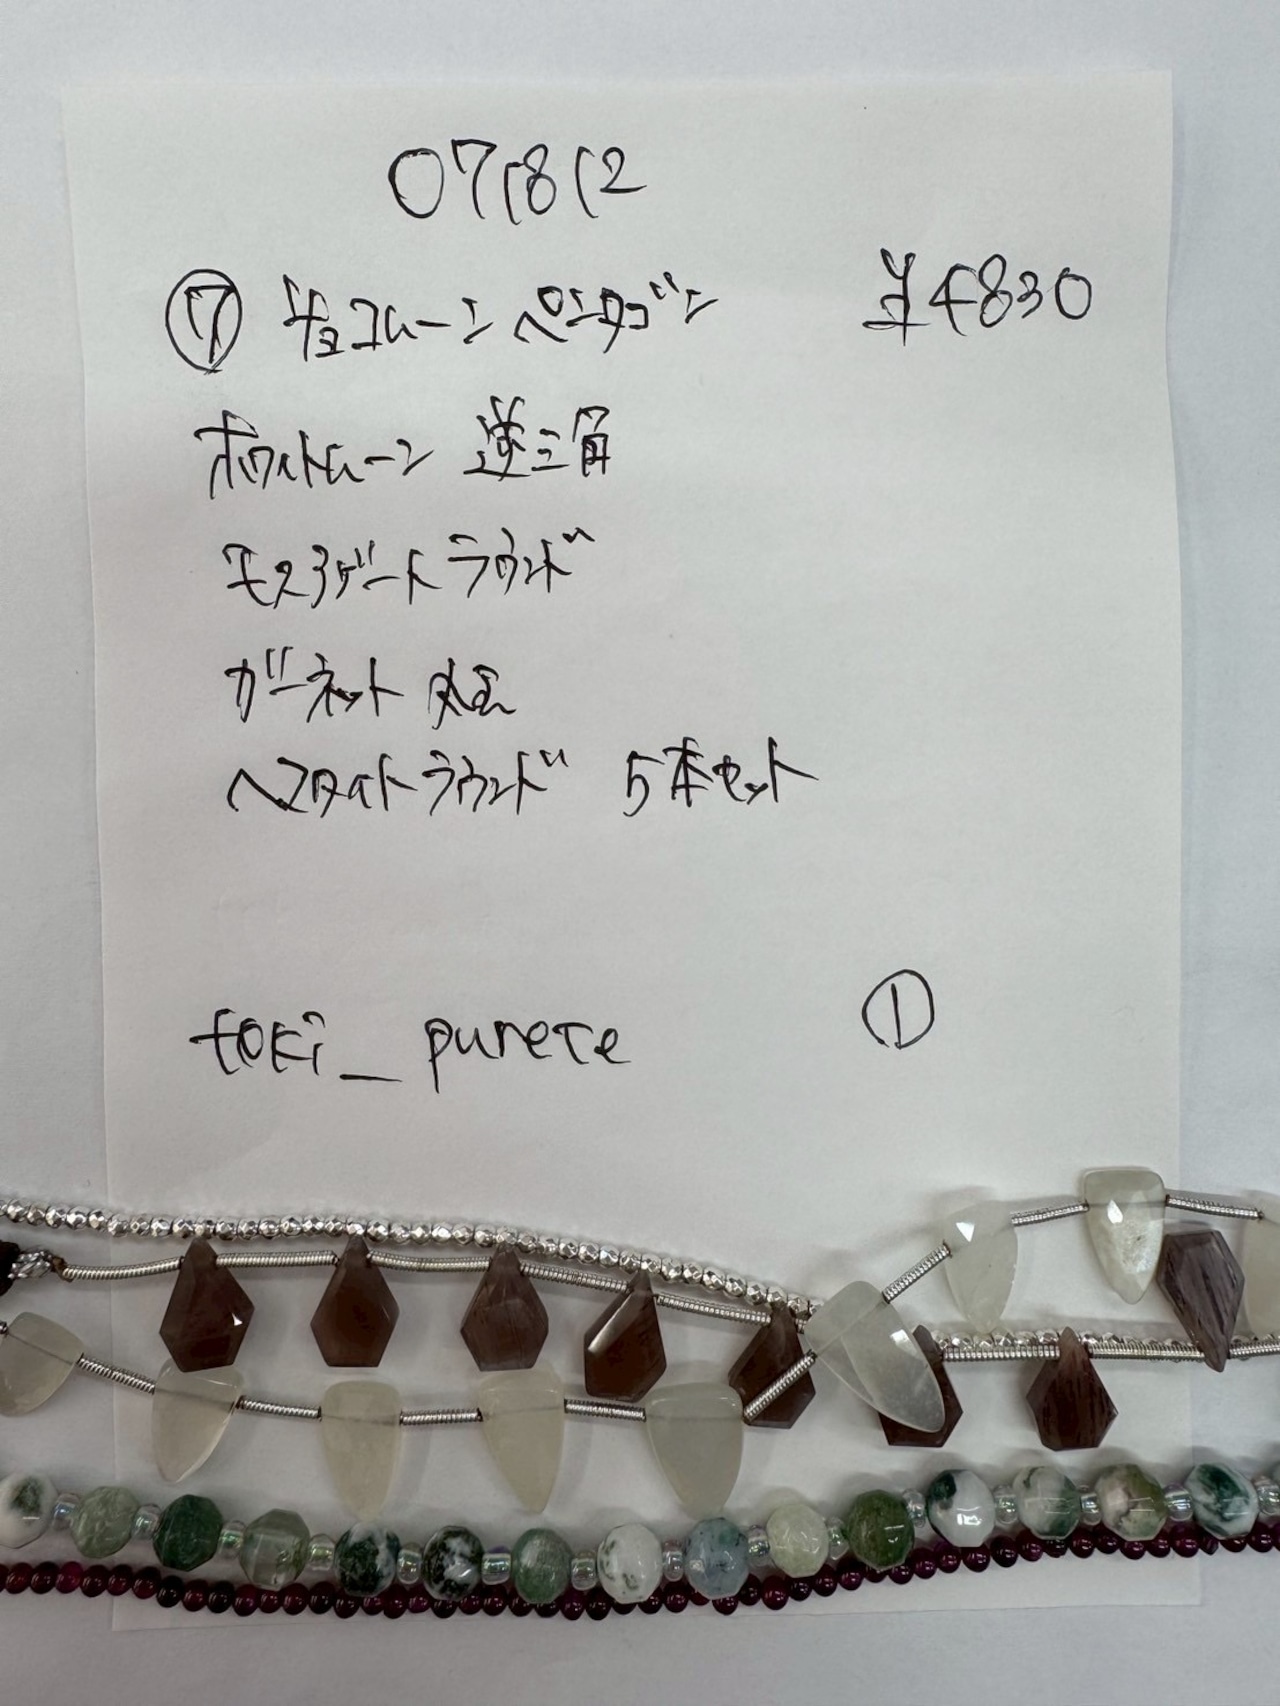 071812
⑦ チョコムーン ペンタゴン ¥4830
ホワイトムーン 逆三角
モスアゲート ラウンド
ガーネット 丸玉
ヘマタイト ラウンド 5本セット
toki_purete ①